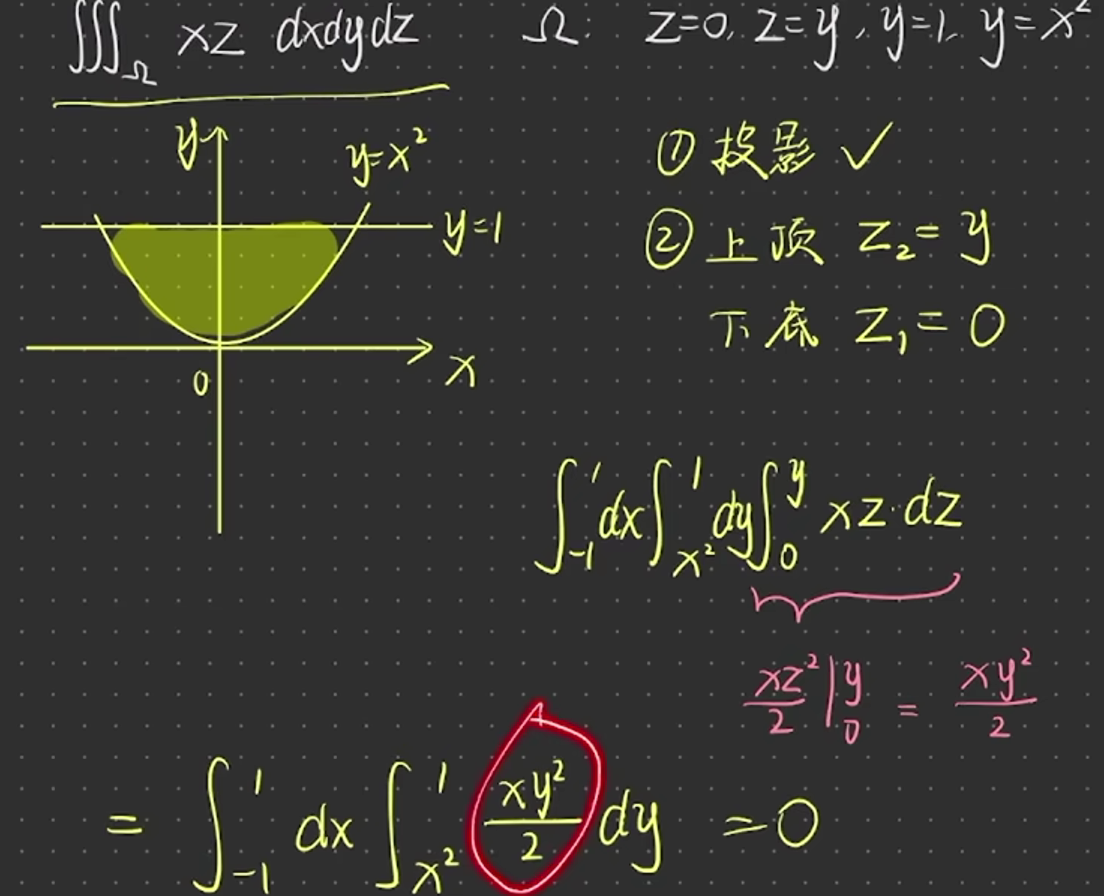 ∭_Ω xz dxdydz Ω: z=0, z=y, y=1, y=x²
y
y=x²
y=1
0
x
① 投影 ✓
② 上顶 z₂=y
下底 z₁=0
∫₋₁¹dx∫_{x²}^1dy∫₀^y xz·dz
xz²/2|₀^y = xy²/2
= ∫₋₁¹ dx ∫_{x²}^1 xy²/2 dy =0